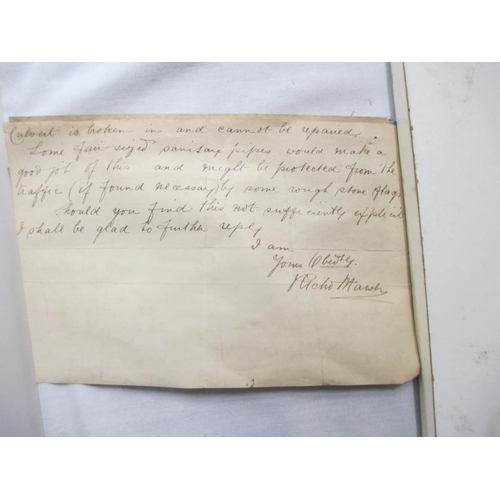 Culvert is broken in and cannot be repaired.
Some fair sized sanitary pipes would make a
good job of this and might be protected from the
traffic (if found necessary) by some rough stone flags
Should you find this not sufficiently explicit
I shall be glad to further reply
I am
Yours Obedtly.